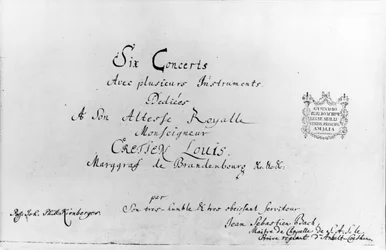 Six Concerts
Avec plusieurs Instruments
Dediées
A Son Altesse Royalle
Monseigneur
CRETIEN LOUIS.
Marggraf de Brandenbourg &c.&c.&c.
par
Son tres-humble & tres obeissant serviteur
Jean Sebastien Bach,
Maitre de Chapelle de S. A. S. le
Prince regnant d'Anhalt-Coethen.
Kirnberger
AMALIA